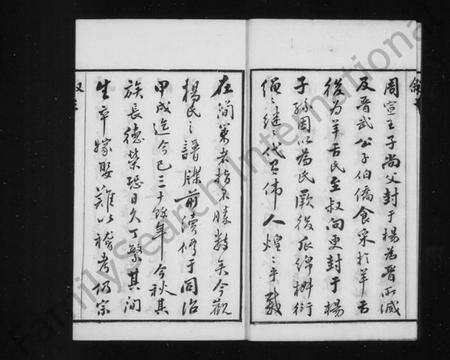 周宣王子尚父封于楊為晉所滅
及晉武公子伯僑食采於羊舌
後為羊舌氏至叔向更封于楊
子孫因以為氏厥後瓜綿椒衍
繩繩繼繼代有偉人煌煌乎載
在簡策者指不勝數矣今觀
楊氏之譜牒前續修于同治
甲戌迄今已三十餘年今秋其
族長德榮恐日久丁繁其間
生卒嫁娶難以稽考仍宗
FamilySearch International